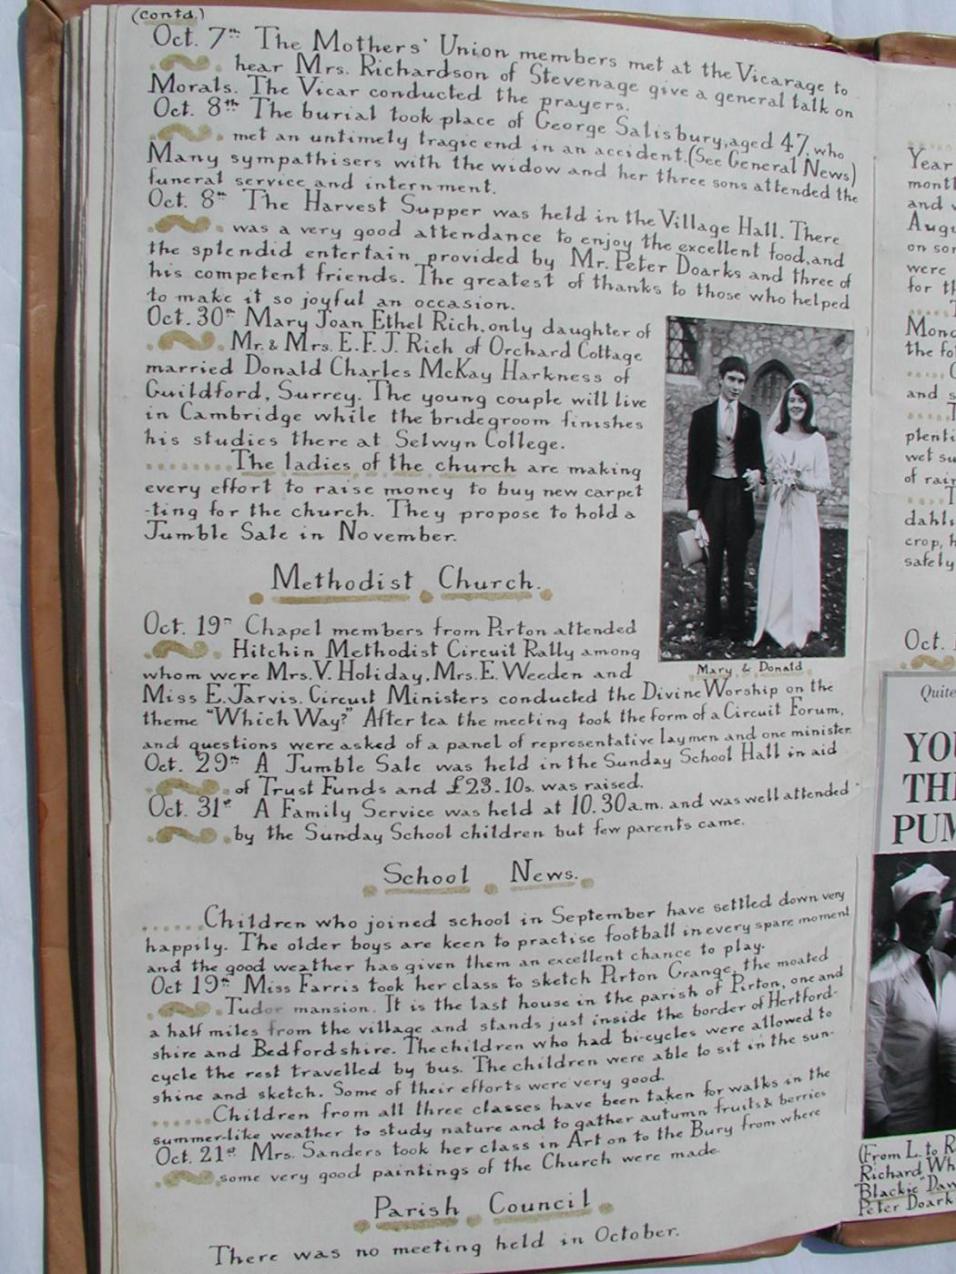 (contd.)
Oct. 7th The Mothers' Union members met at the Vicarage to
hear Mrs. Richardson of Stevenage give a general talk on
Morals. The Vicar conducted the prayers.
Oct. 8th The burial took place of George Salisbury, aged 47, who
met an untimely tragic end in an accident. (See General News)
Many sympathisers with the widow and her three sons attended the
funeral service and internment.
Oct. 8th The Harvest Supper was held in the Village Hall. There
was a very good attendance to enjoy the excellent food, and
the splendid entertain provided by Mr. Peter Doarks and three of
his competent friends. The greatest of thanks to those who helped
to make it so joyful an occasion.
Oct. 30th Mary Joan Ethel Rich, only daughter of
Mr. & Mrs. E.F.J. Rich of Orchard Cottage
married Donald Charles McKay Harkness of
Guildford, Surrey. The young couple will live
in Cambridge while the bridegroom finishes
his studies there at Selwyn College.
........The ladies of the church are making
every effort to raise money to buy new carpet
-ting for the church. They propose to hold a
Jumble Sale in November.
Mary & Donald
Methodist Church.
Oct. 19th Chapel members from Pirton attended
Hitchin Methodist Circuit Rally among
whom were Mrs. V. Holiday, Mrs. E. Weeden and
Miss E. Jarvis. Circuit Ministers conducted the Divine Worship on the
theme "Which Way?" After tea the meeting took the form of a Circuit Forum,
and questions were asked of a panel of representative laymen and one minister.
Oct. 29th A Jumble Sale was held in the Sunday School Hall in aid
of Trust Funds and £23.10s. was raised.
Oct. 31st A Family Service was held at 10.30a.m. and was well attended
by the Sunday School children but few parents came.
School News.
......Children who joined school in September have settled down very
happily. The older boys are keen to practise football in every spare moment
and the good weather has given them an excellent chance to play.
Oct 19th Miss Farris took her class to sketch Pirton Grange, the moated
Tudor mansion. It is the last house in the parish of Pirton, one and
a half miles from the village and stands just inside the border of Hertford-
shire and Bedfordshire. The children who had bi-cycles were allowed to
cycle the rest travelled by bus. The children were able to sit in the sun-
shine and sketch. Some of their efforts were very good.
......Children from all three classes have been taken for walks in the
summer-like weather to study nature and to gather autumn fruits & berries
Oct. 21st Mrs. Sanders took her class in Art on to the Bury from where
some very good paintings of the Church were made.
Parish Council
There was no meeting held in October.
Year
month
and
Augu
on so
were
for th
Mond
the fo
and s
plenti
wet su
of rain
dahli
crop, h
safely
Oct.
Quite
YOU
THE
PUM
(From L. to R
Richard Wh
"Blackie" Daw
Peter Doark